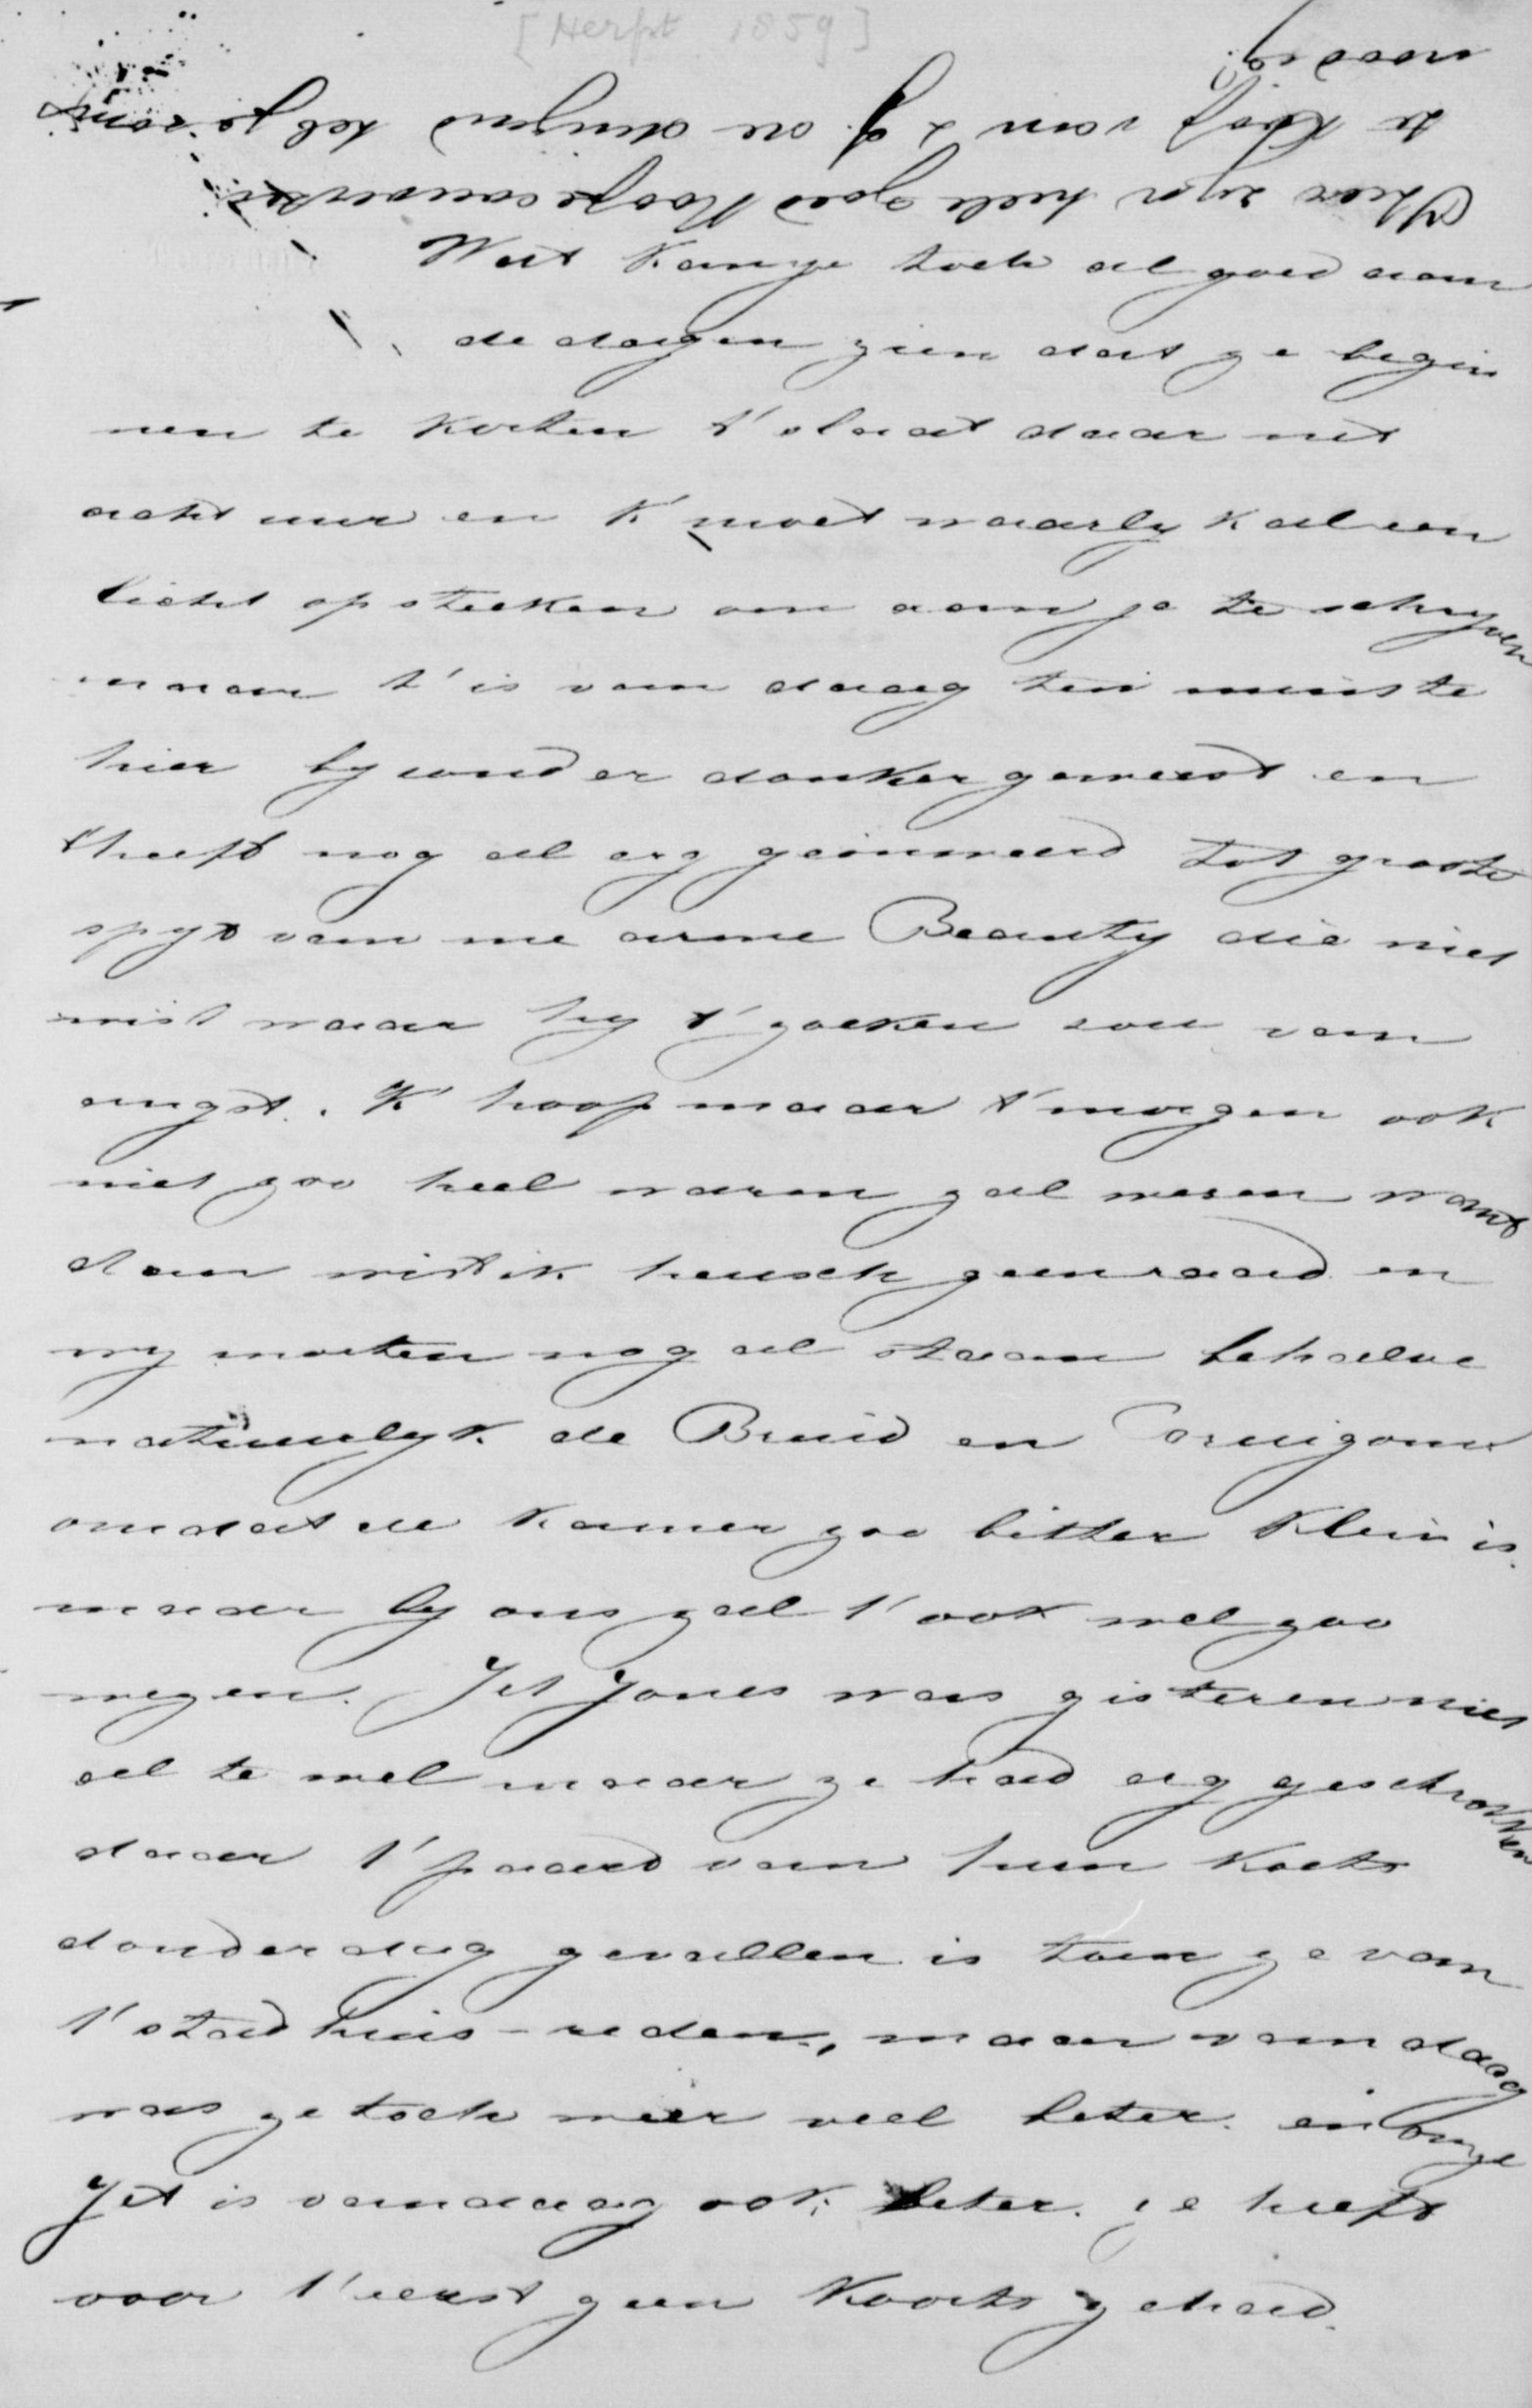 [Herfst 1859]
Hier zyn heele goed koope couverten
te koop van 2 g. de duizend heb je soms
noodig
Wat kan je toch al goed aan
de dagen zien dat ze begin
nen te korten t' slaat daar net
acht uur en k' moet waarlyk al een
licht opsteeken om aan je te schryven
maar t' is van daag ten minste
hier byzonder donker geweest en
t'heeft nog al erg geonweerd tot groote
spyt van me arme Beauty die niet
wist waar hy t' zoeken zou van
angst. K' hoop maar t' morgen ook
niet zoo heel warm zal wesen want
dan wist ik heusch geen raad en
wy moeten nog al staan behalve
natuurlyk de Bruid en Bruigom
omdat de kamer zoo bitter klein is.
maar by ons zal t' ook wel zoo
wezen. Jet Jones was gisteren niet
al te wel maar ze had erg geschrokken
daar t' paard van hun koets
donderdag gevallen is toen ze van
t' stadhuis-reden, maar van daag
was ze toch weer veel beter. en onze
Jet is vandaag ook beter. ze heeft
voor t' eerst geen koorts gehad.